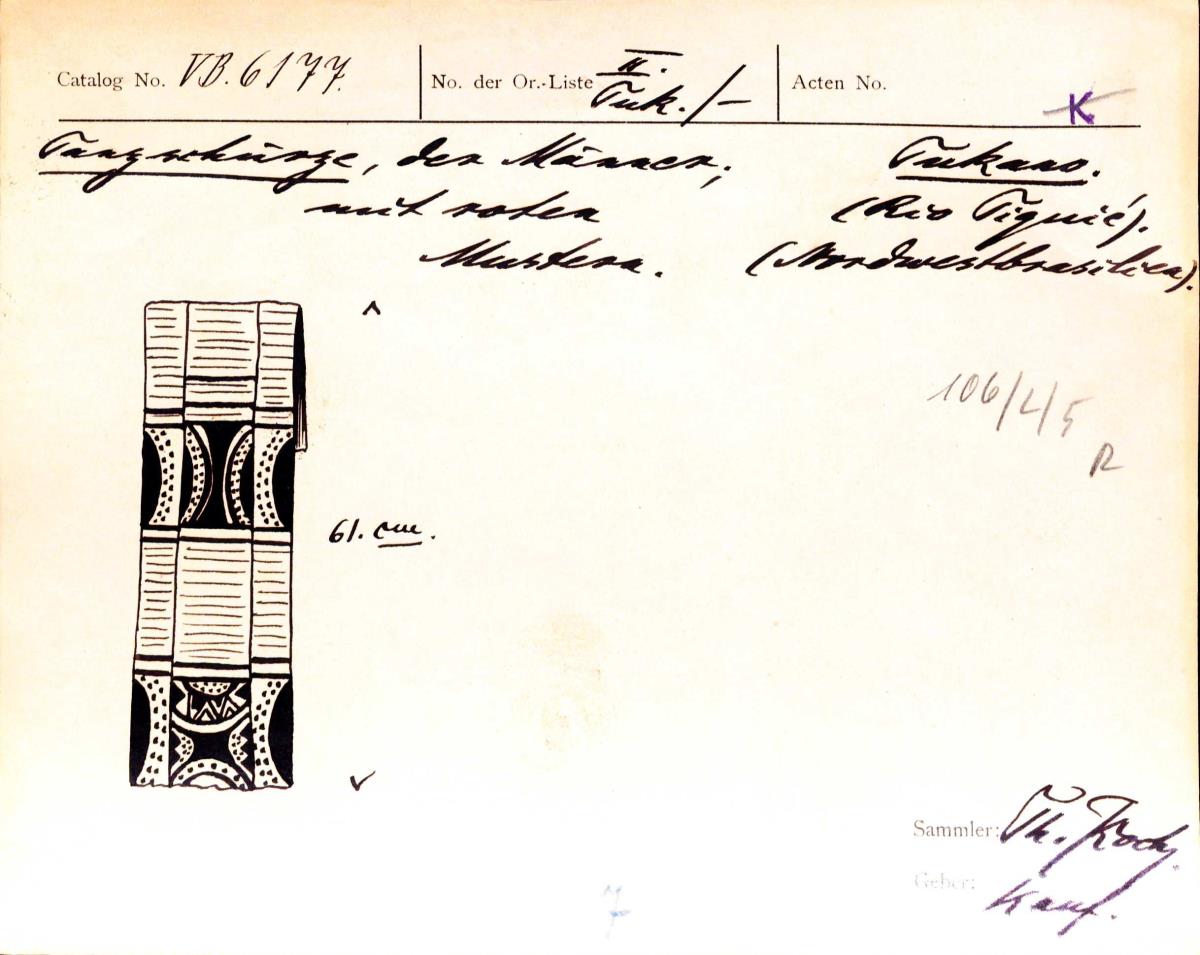 Catalog No. VB. 6177.
No. der Or.-Liste II. Tuk. /-
Acten No.
K
Tanzschürze, der Männer,
mit roten
Mustern.
Tukano.
(Rio Tiquié).
(Nordwestbrasilien).
61. cm.
106/2/5
R
Sammler: Th. Koch.
Geber: Kauf.
7